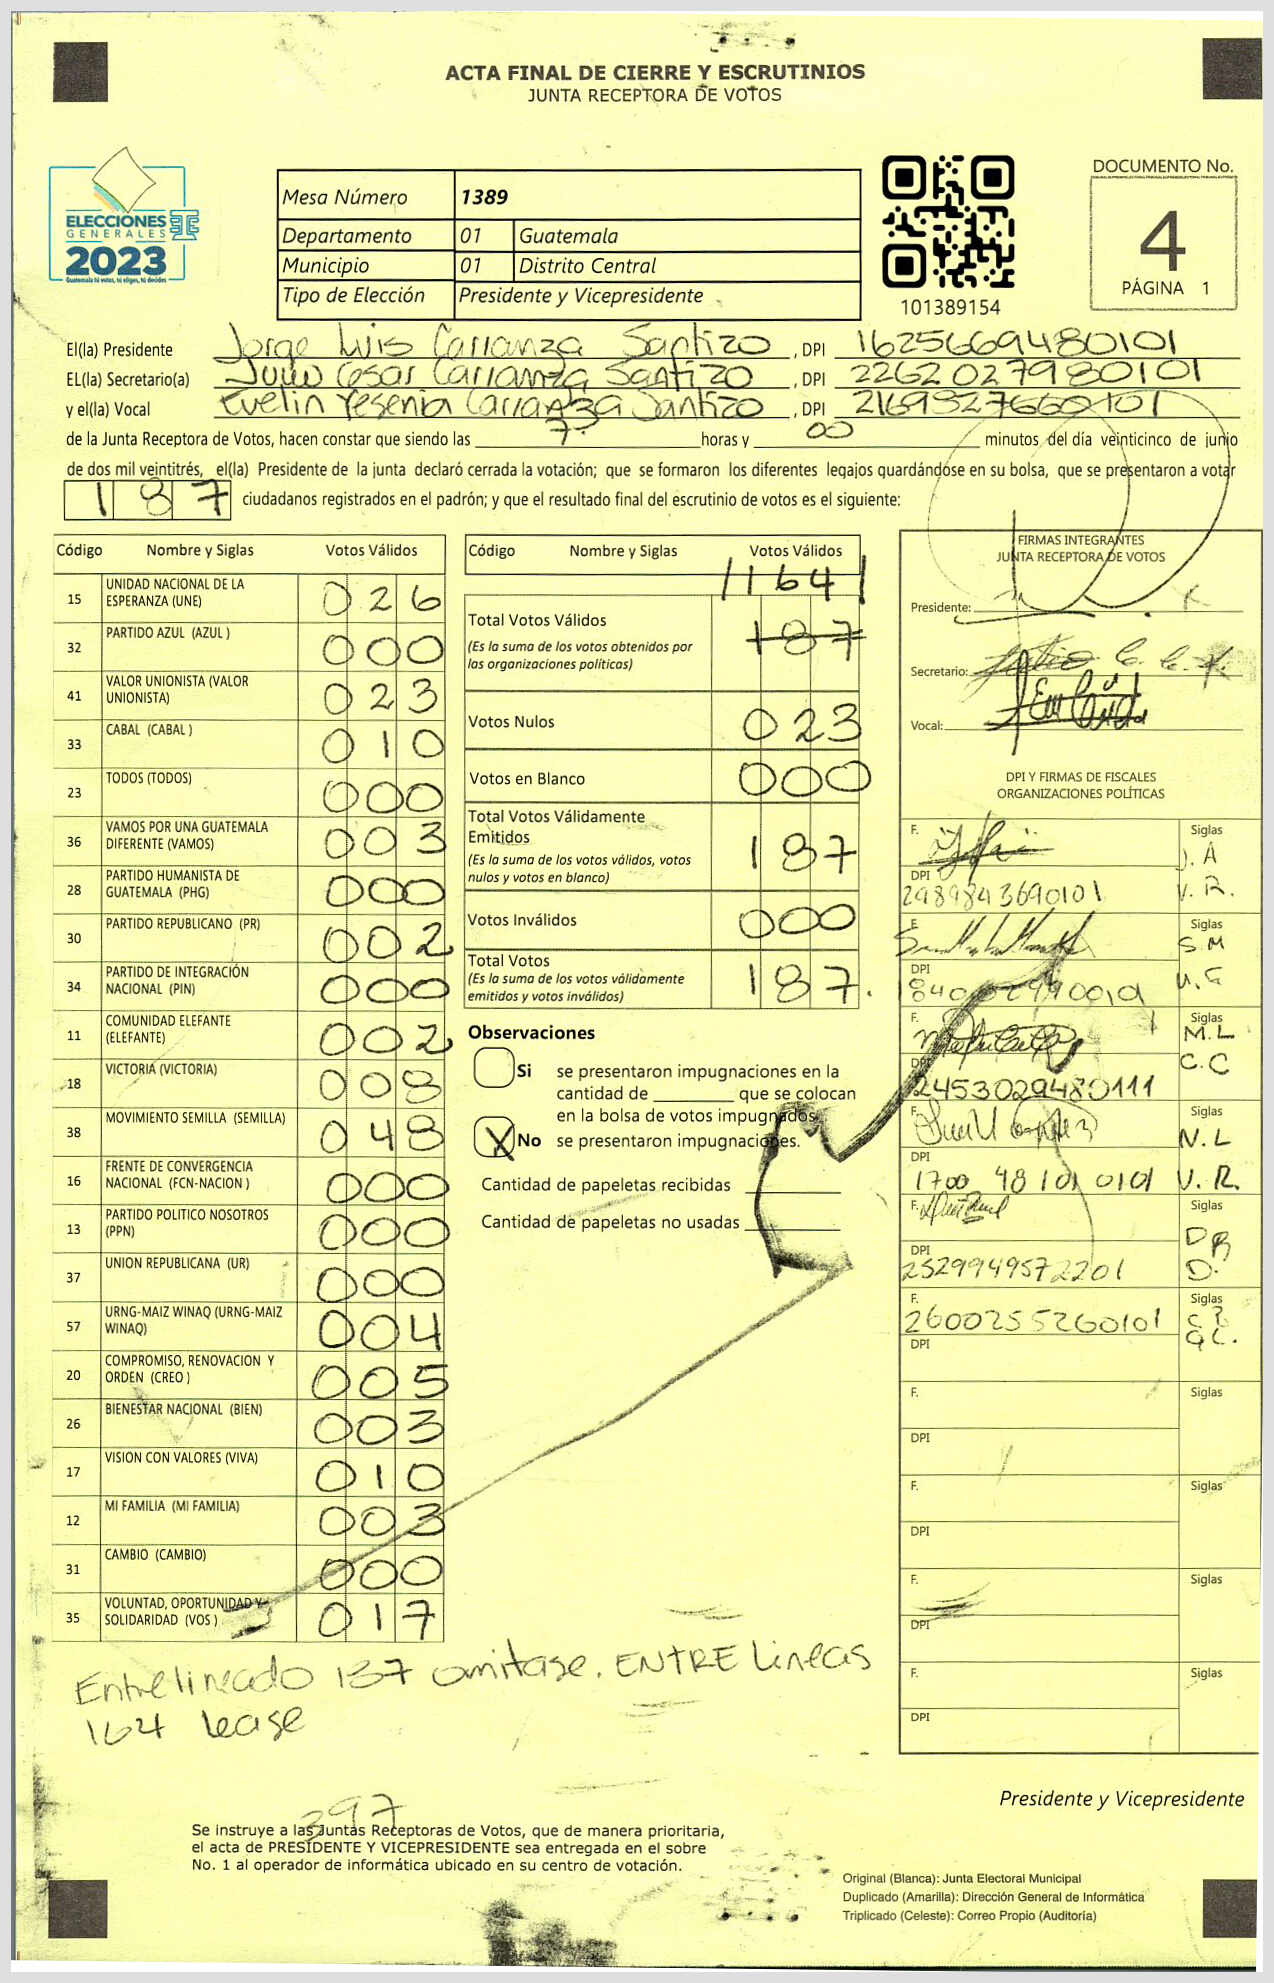 ACTA FINAL DE CIERRE Y ESCRUTINIOS
JUNTA RECEPTORA DE VOTOS
ELECCIONES
GENERALES
2023
Guatemala tú votas, tú eliges, tú decides
Mesa Número 1389
Departamento 01 Guatemala
Municipio 01 Distrito Central
Tipo de Elección Presidente y Vicepresidente
101389154
DOCUMENTO No.
4
PÁGINA 1
El(la) Presidente Jorge Luis Carranza Santizo, DPI 1625669480101
EL(la) Secretario(a) Julio Cesar Carranza Santizo, DPI 2262027980101
y el(la) Vocal Evelin Yesenia Carranza Santizo, DPI 2169327660101
de la Junta Receptora de Votos, hacen constar que siendo las 7 horas y 00 minutos del día veinticinco de junio
de dos mil veintitrés, el(la) Presidente de la junta declaró cerrada la votación; que se formaron los diferentes legajos guardándose en su bolsa, que se presentaron a votar
187 ciudadanos registrados en el padrón; y que el resultado final del escrutinio de votos es el siguiente:
Código Nombre y Siglas Votos Válidos
15 UNIDAD NACIONAL DE LA ESPERANZA (UNE) 026
32 PARTIDO AZUL (AZUL ) 000
41 VALOR UNIONISTA (VALOR UNIONISTA) 023
33 CABAL (CABAL ) 010
23 TODOS (TODOS) 000
36 VAMOS POR UNA GUATEMALA DIFERENTE (VAMOS) 003
28 PARTIDO HUMANISTA DE GUATEMALA (PHG) 000
30 PARTIDO REPUBLICANO (PR) 002
34 PARTIDO DE INTEGRACIÓN NACIONAL (PIN) 000
11 COMUNIDAD ELEFANTE (ELEFANTE) 002
18 VICTORIA (VICTORIA) 008
38 MOVIMIENTO SEMILLA (SEMILLA) 048
16 FRENTE DE CONVERGENCIA NACIONAL (FCN-NACION ) 000
13 PARTIDO POLITICO NOSOTROS (PPN) 000
37 UNION REPUBLICANA (UR) 000
57 URNG-MAIZ WINAQ (URNG-MAIZ WINAQ) 004
20 COMPROMISO, RENOVACION Y ORDEN (CREO ) 005
26 BIENESTAR NACIONAL (BIEN) 003
17 VISION CON VALORES (VIVA) 010
12 MI FAMILIA (MI FAMILIA) 003
31 CAMBIO (CAMBIO) 000
35 VOLUNTAD, OPORTUNIDAD Y SOLIDARIDAD (VOS ) 017
Código Nombre y Siglas Votos Válidos
/164/
Total Votos Válidos 187
(Es la suma de los votos obtenidos por
las organizaciones políticas)
Votos Nulos 023
Votos en Blanco 000
Total Votos Válidamente
Emitidos 187
(Es la suma de los votos válidos, votos
nulos y votos en blanco)
Votos Inválidos 000
Total Votos 187.
(Es la suma de los votos válidamente
emitidos y votos inválidos)
Observaciones
Si se presentaron impugnaciones en la
cantidad de ________ que se colocan
en la bolsa de votos impugnados.
X No se presentaron impugnaciones.
Cantidad de papeletas recibidas
Cantidad de papeletas no usadas
FIRMAS INTEGRANTES
JUNTA RECEPTORA DE VOTOS
Presidente:
Secretario:
Vocal:
DPI Y FIRMAS DE FISCALES
ORGANIZACIONES POLÍTICAS
F. Siglas J. A
DPI 2989843690101 V. R.
F. Siglas S M
DPI
F. Siglas M.L
DPI 2453029480111 C.C
F. Siglas N.L
DPI 1700 48101 0101 V. R.
F. Siglas D R
DPI 2529949572201 D.
F. 2600255260101 Siglas
DPI
F. Siglas
DPI
F. Siglas
DPI
F. Siglas
DPI
F. Siglas
DPI
Entrelineado 187 omitase. ENTRE Lineas
164 Lease
397
Presidente y Vicepresidente
Se instruye a las Juntas Receptoras de Votos, que de manera prioritaria,
el acta de PRESIDENTE Y VICEPRESIDENTE sea entregada en el sobre
No. 1 al operador de informática ubicado en su centro de votación.
Original (Blanca): Junta Electoral Municipal
Duplicado (Amarilla): Dirección General de Informática
Triplicado (Celeste): Correo Propio (Auditoría)